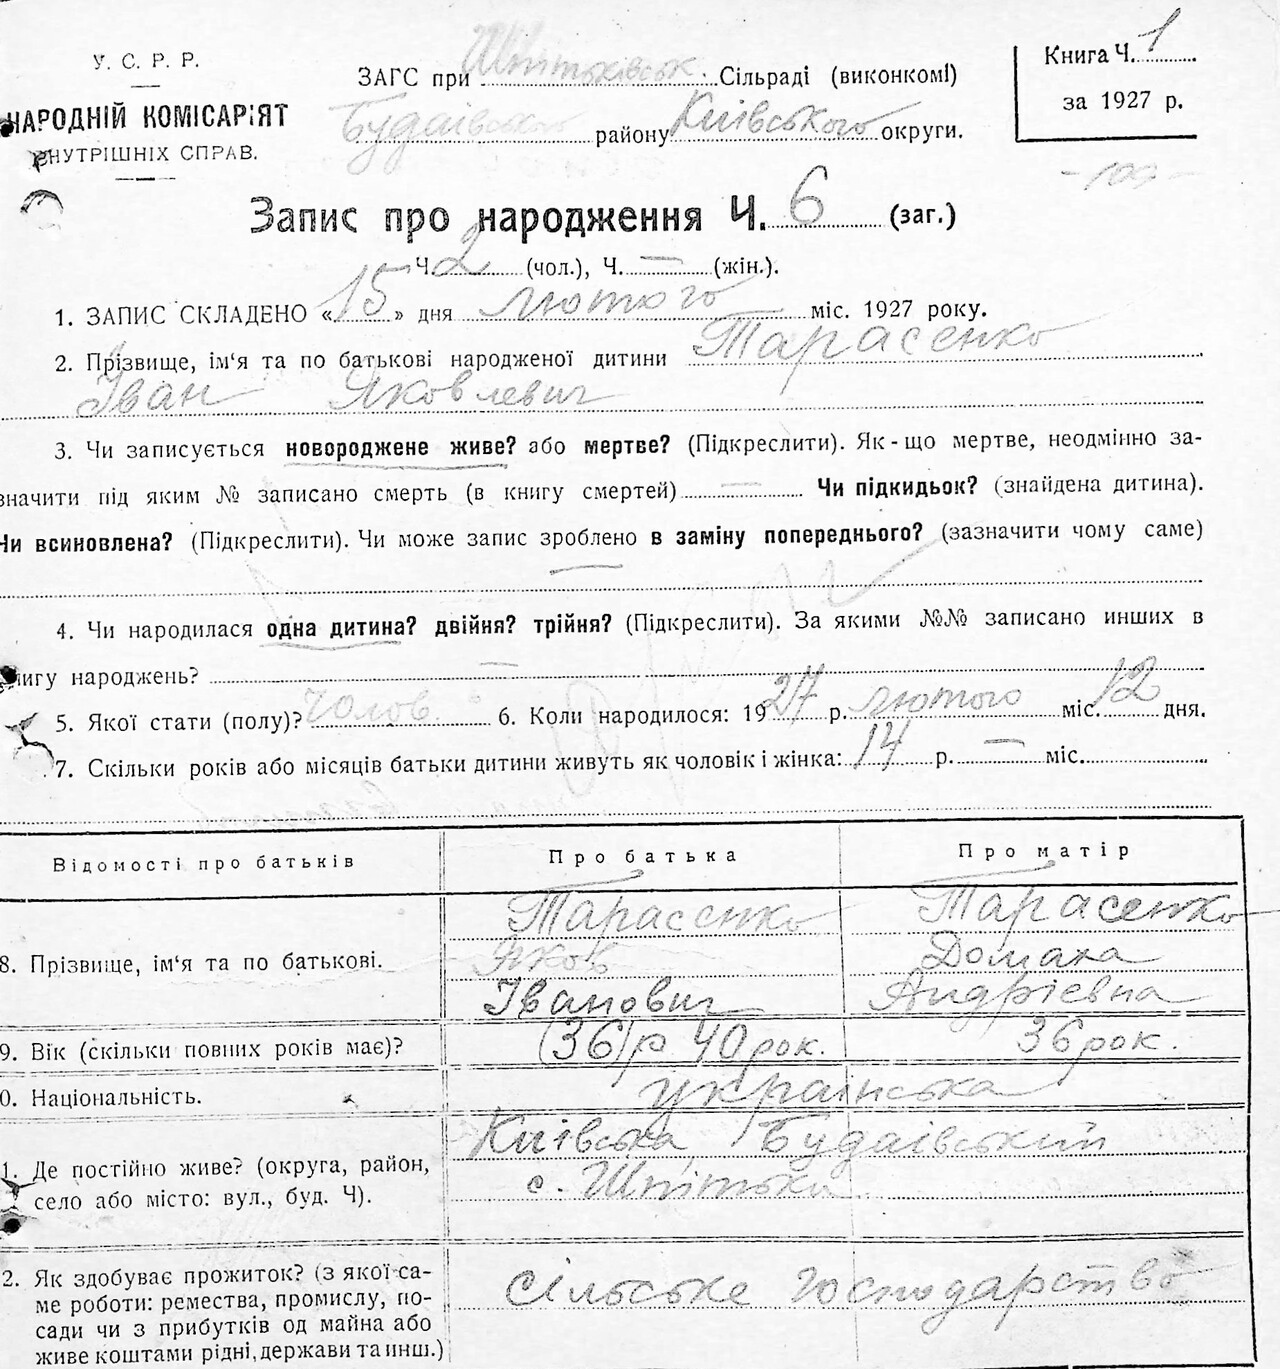 У. С. Р. Р.
НАРОДНІЙ КОМІСАРІЯТ
ВНУТРІШНІХ СПРАВ.
ЗАГС при Шпитьківськ. Сільраді (виконкомі)
Будаівського району Київського округи.
Книга Ч. 1
за 1927 р.
- 109 -
Запис про народження Ч. 6 (заг.)
Ч. 2 (чол.), Ч. — (жін.).
1. ЗАПИС СКЛАДЕНО «15» дня лютого міс. 1927 року.
2. Прізвище, ім‘я та по батькові народженої дитини Тарасенко
Іван Яковлевич
3. Чи записується новороджене живе? або мертве? (Підкреслити). Як-що мертве, неодмінно за-
значити під яким № записано смерть (в книгу смертей) — Чи підкидьок? (знайдена дитина).
Чи всиновлена? (Підкреслити). Чи може запис зроблено в заміну попереднього? (зазначити чому саме)
—
4. Чи народилася одна дитина? двійня? трійня? (Підкреслити). За якими №№ записано инших в
книгу народжень? —
5. Якої стати (полу)? Чолов. 6. Коли народилося: 1927 р. лютого міс. 12 дня.
7. Скільки років або місяців батьки дитини живуть як чоловік і жінка: 14 р. — міс.
Відомості про батьків Про батька Про матір
Тарасенко Тарасенко
8. Прізвище, ім‘я та по батькові. Яков Домаха
Іванович Андрієвна
9. Вік (скільки повних років має)? (36)р 40 рок. 36 рок.
0. Національність. українська
Київська, Будаівський
1. Де постійно живе? (округа, район,
село або місто: вул., буд. Ч). с. Шпітька
2. Як здобуває прожиток? (з якої са-
ме роботи: ремества, промислу, по- сільське господарство
сади чи з прибутків од майна або
живе коштами рідні, держави та инш.)